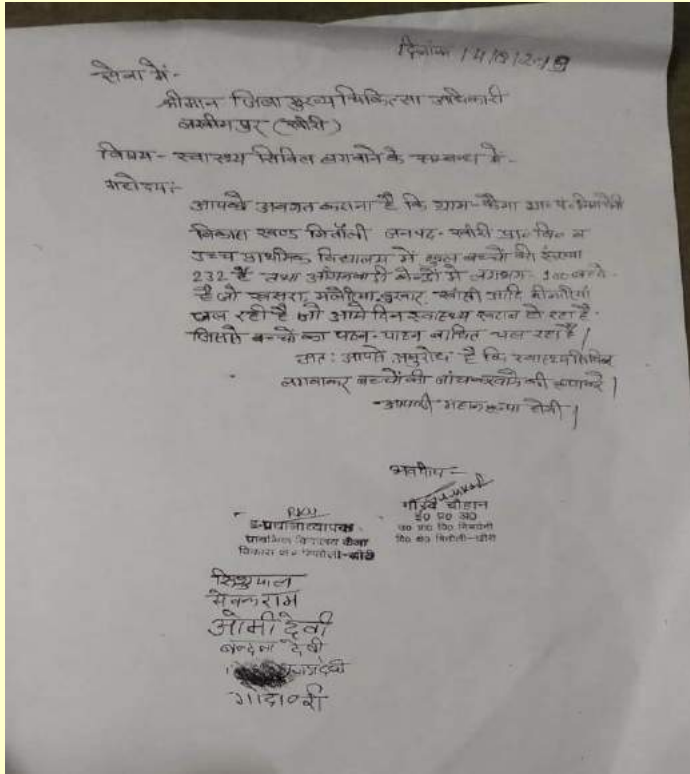 दिनांक 14/9/2019
सेवा में-
श्रीमान जिला मुख्य चिकित्सा अधिकारी
लखीमपुर (खीरी)
विषय- स्वास्थ्य सिविल लगवाने के सम्बन्ध में-
महोदय:-
आपको अवगत कराना है कि ग्राम-
विकास खण्ड मितौली जनपद-खीरी प्रा० वि० व
उच्च प्राथमिक विद्यालय में कुल बच्चों की संख्या
232 है तथा आंगनबाड़ी केन्द्रों में लगभग 100 बच्चे
है जो खसरा, मलेरिया, बुखार, खाँसी आदि बीमारियां
चल रही है जो आये दिन स्वास्थ्य खराब हो रहा है
जिससे बच्चों का पठन-पाठन बाधित चल रहा है।
अत: आपसे अनुरोध है कि स्वास्थ्य
लगवाकर बच्चों की जांच करवाने की कृपा करें।
आपकी महान कृपा होगी।
भवदीय:-
गौरव चौहान
इ० प्र० अ०
इ-प्रधानाध्यापक
प्राथमिक विद्यालय
मितौली-खीरी
वि० क्षे० मितौली-खीरी
शिशुपाल
सेवकराम
ओमी देवी
बन्दना देवी
गोदावरी